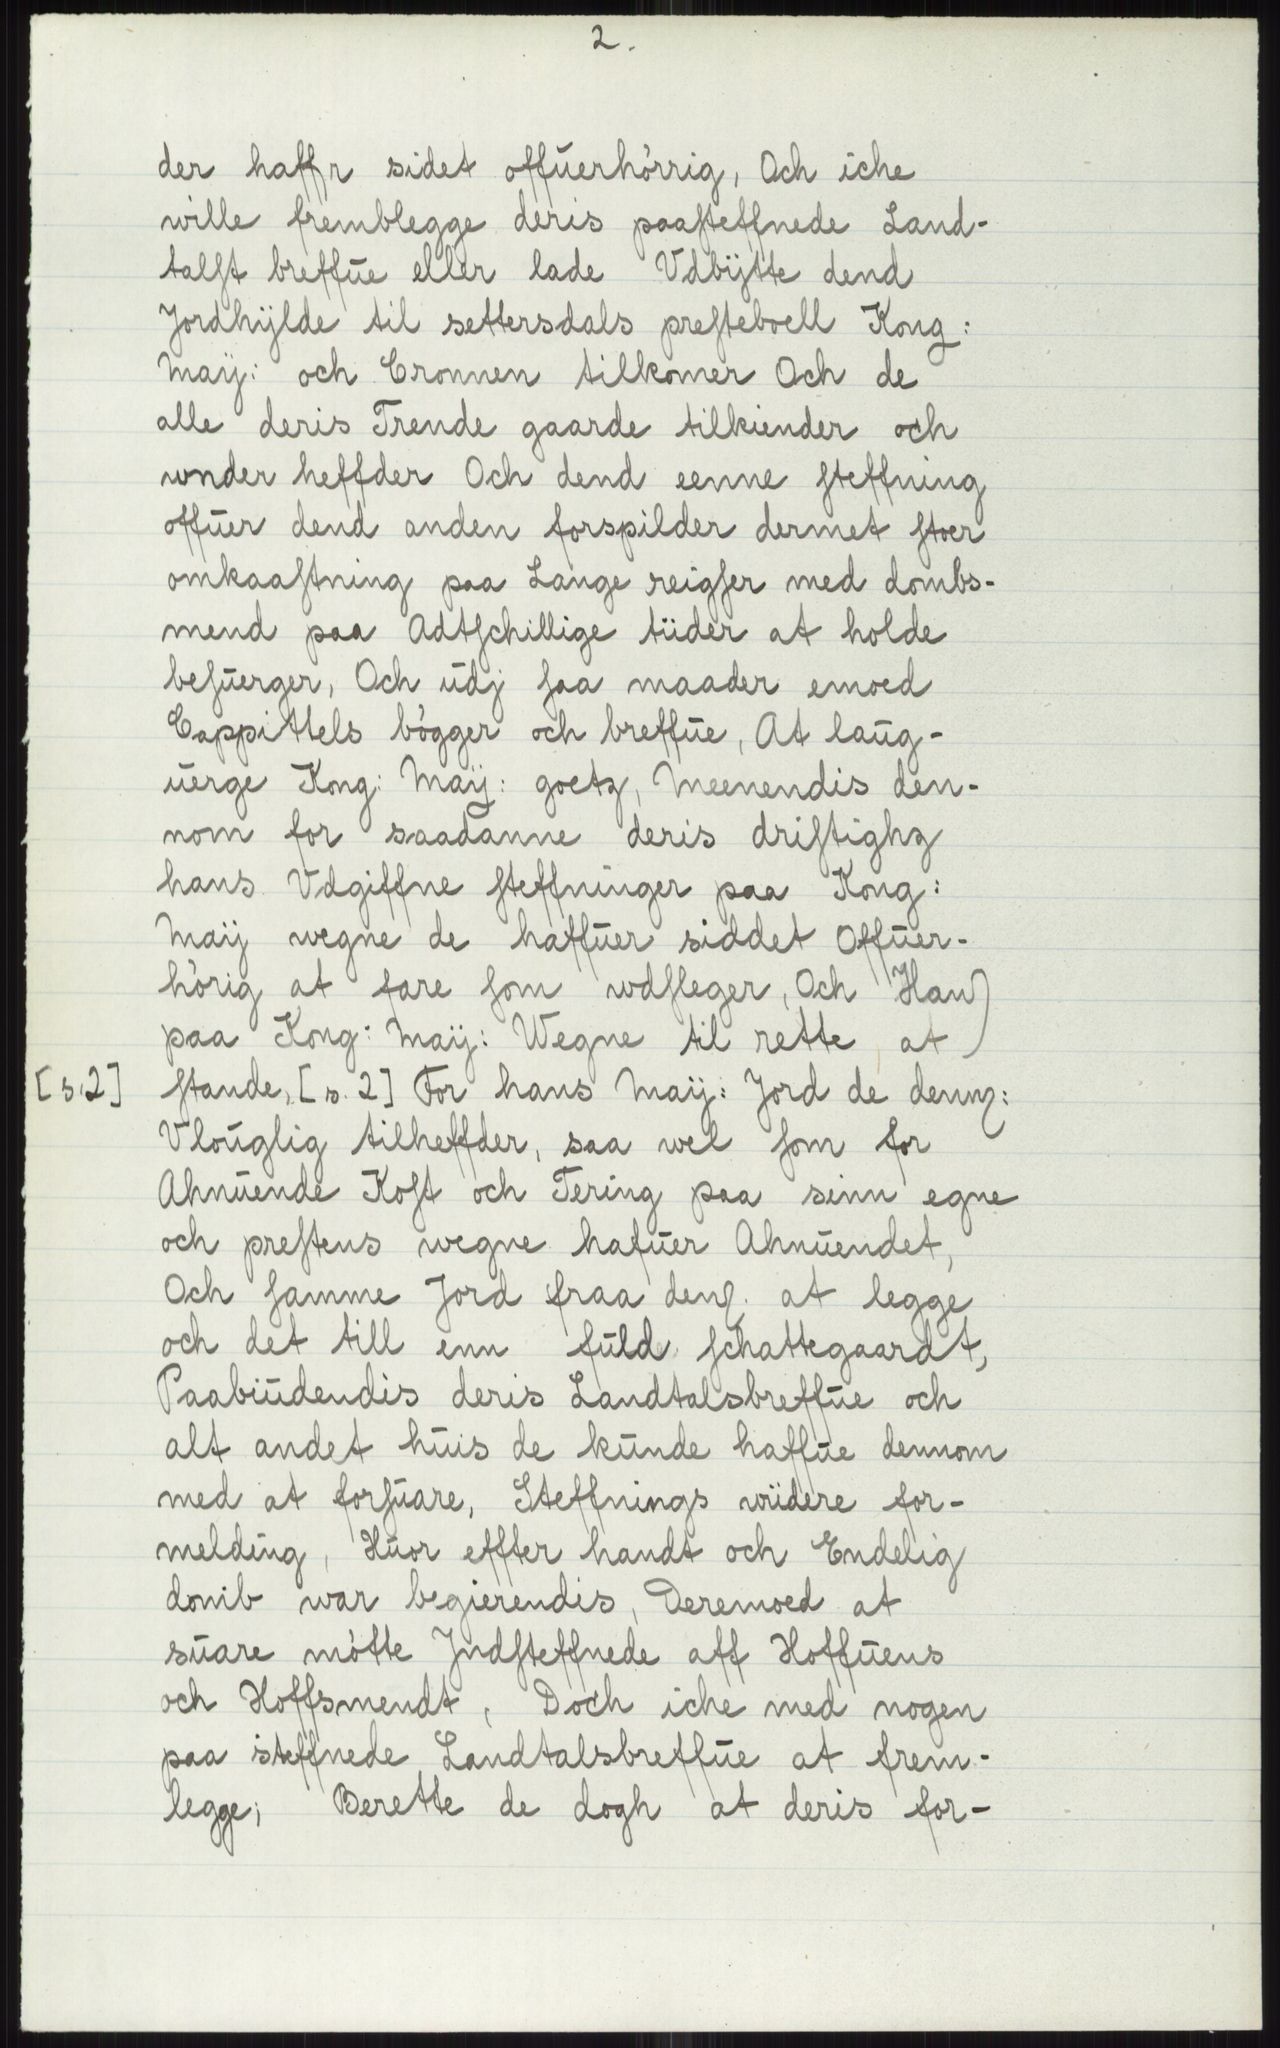 2.
der haffr sidet offuerhörrig, Och iche
wille fremblegge deris paasteffnede Land-
talst breffue eller lade Vdbÿtte dend
Jordhÿlde til settersdals presteboell Kong:
Maÿ: och Cronnen tilkomer Och de
alle deris Trende gaarde tilkiender och
wnder heffder Och dend eenne steffning
offuer dend anden forspilder dermet stoer
omkaastning paa Lange reigser med dombs-
mend paa Adtschillige tiider at holde
besuerger, Och udj saa maader emoed
Cappittels bögger och breffue, At laug-
uerge Kong: Maÿ: goetz, Meenendis den-
nom for saadanne deris dristighz
hans Vdgiffne steffninger paa Kong:
Maÿ wegne de haffuer siddet Offuer-
hörig at fare som wdsleger, Och Han
paa Kong: Maÿ: Wegne til rette at
[s. 2] stande, [s. 2] For hans Maÿ: Jord de denn:
Vlouglig tilheffder, saa wel som for
Ahnuende Kost och Tering paa sinn egne
och prestens wegne hafuer Ahnuendet,
Och samme Jord fraa den at legge
och det till enn fuld schattegaardt,
Paabiudendis deris Landtalsbreffue och
alt andet huis de kunde haffue dennom
med at forsuare, Steffnings wiidere for-
melding, Huor effter handt och Endelig
domb war begierendis, Deremoed at
suare mötte Jndsteffnede aff Hoffuens
och Hoffsmendt, Doch iche med nogen
paa steffnede Landtalsbreffue at frem-
legge; Berette de dogh at deris for-